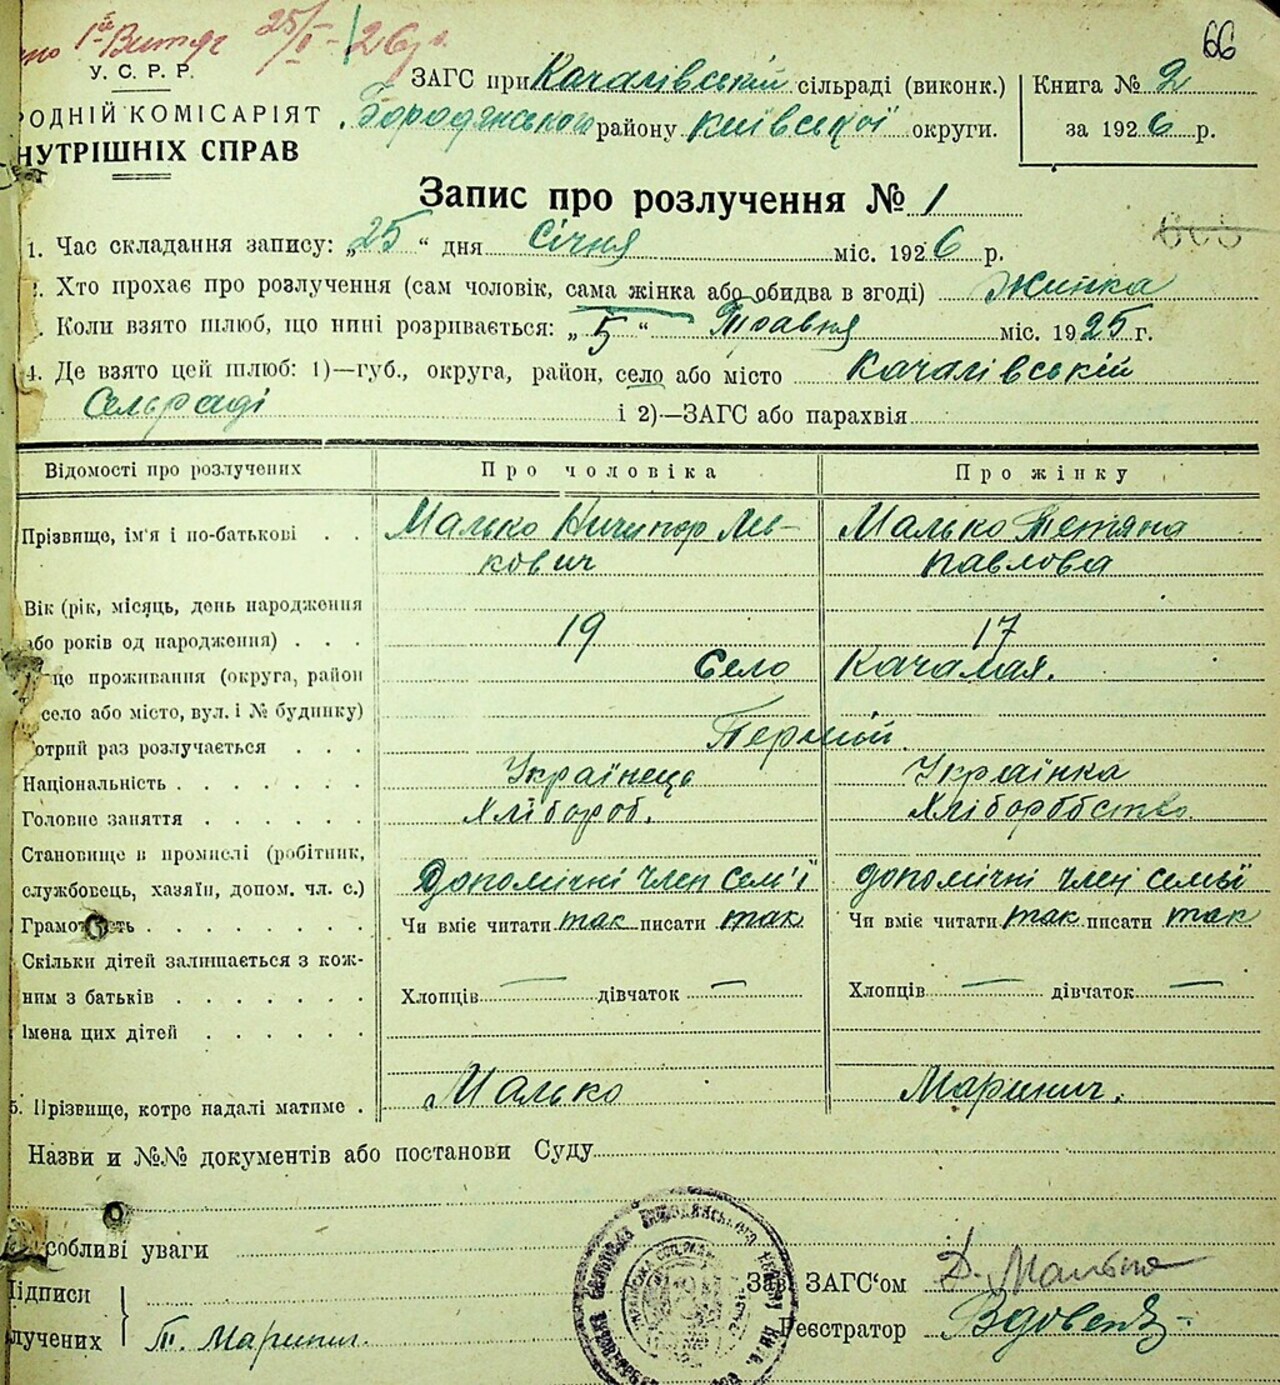 1й Витяг 25/I-26 р.
66
У. С. Р. Р.
ОДНІЙ КОМІСАРІЯТ
НУТРІШНІХ СПРАВ
ЗАГС при Качалівській сільраді (виконк.)
Бородянського району Київської округи.
Книга № 2
за 1926 р.
Запис про розлучення № 1
1. Час складання запису: „25“ дня Січня міс. 1926 р.
Хто прохає про розлучення (сам чоловік, сама жінка або обидва в згоді) Жинка
Коли взято шлюб, що нині розривається: „5“ Травня міс. 1925 г.
4. Де взято цей шлюб: 1)—губ., округа, район, село або місто Качалівській
Сельраді і 2)—ЗАГС або парахвія
Відомості про розлучених Про чоловіка Про жінку
Прізвище, ім'я і по-батькові . . Малько Ничипор Ль- Малько Тетяна
кович Павлова
Вік (рік, місяць, день народження
або років од народження) . . . 19 17
це проживання (округа, район Село Качалая.
село або місто, вул. і № будинку)
отрий раз розлучається . . . Перший.
Національність . . . . . . . Українець Українка
Головне заняття . . . . . . Хлібороб. Хліборобство.
Становище в промислі (робітник,
службовець, хазяїн, допом. чл. с.) Допомічні член сем'ї допомічні член семьї
Грамотність . . . . . . . . Чи вміє читати так писати так Чи вміє читати так писати так
Скільки дітей залишається з кож-
ним з батьків . . . . . . . Хлопців — дівчаток — Хлопців — дівчаток —
Імена цих дітей . . . . . .
5. Прізвище, котре надалі матиме . Малько Маринич.
Назви и №№ документів або постанови Суду
собливі уваги
Зав. ЗАГС‘ом Д. Малько
Підписи
лучених Т. Маринич.
Реєстратор